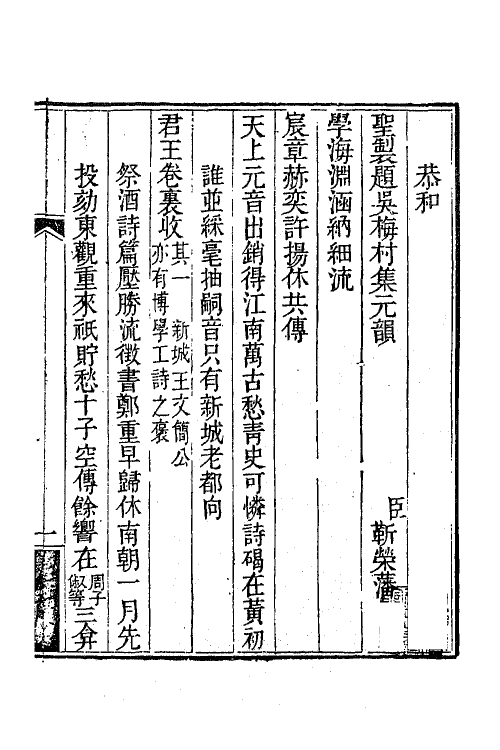 恭和
聖製題吳梅村集元韻
臣靳榮藩
學海淵涵納細流
宸章赫奕許揚休共傳
天上元音出銷得江南萬古愁靑史可憐詩碣在黃初
誰並綵毫抽嗣音只有新城老都向
君王卷裏收其一 新城王文簡公
亦有博學工詩之褒
祭酒詩篇壓勝流徵書鄭重早歸休南朝一月先
投劾東觀重來祇貯愁十子空傳餘響在周子
俶等三弇
一